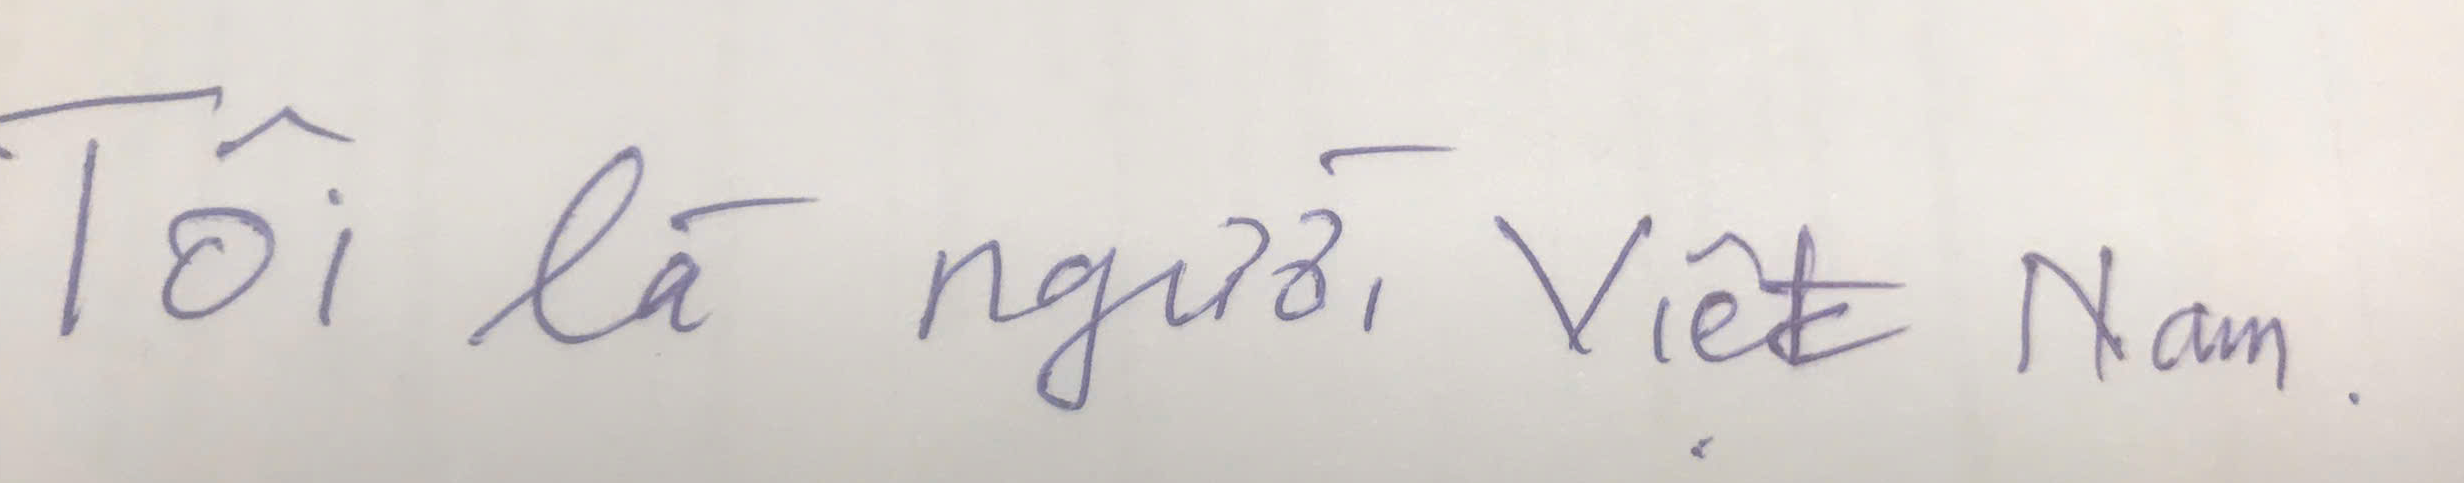 Tôi là người Việt Nam.